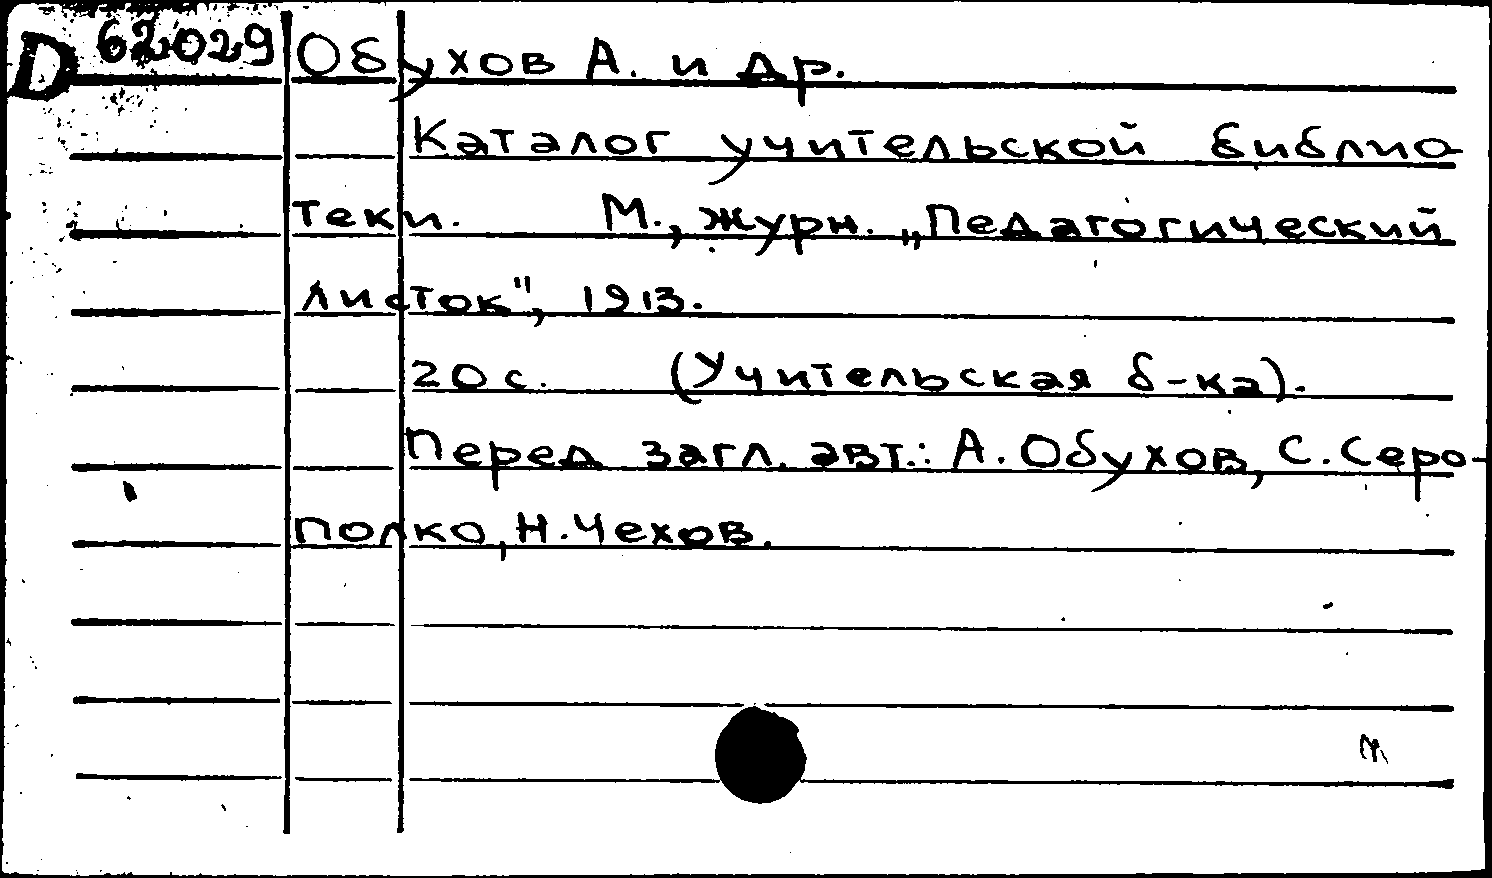 D 62029 Обухов А. и др.
Каталог учительской библио-
теки. М., журн. „Педагогический
листок", 1913.
20 с. (Учительская б-ка).
Перед загл. авт.: А. Обухов, С. Серо-
полко, Н. Чехов.